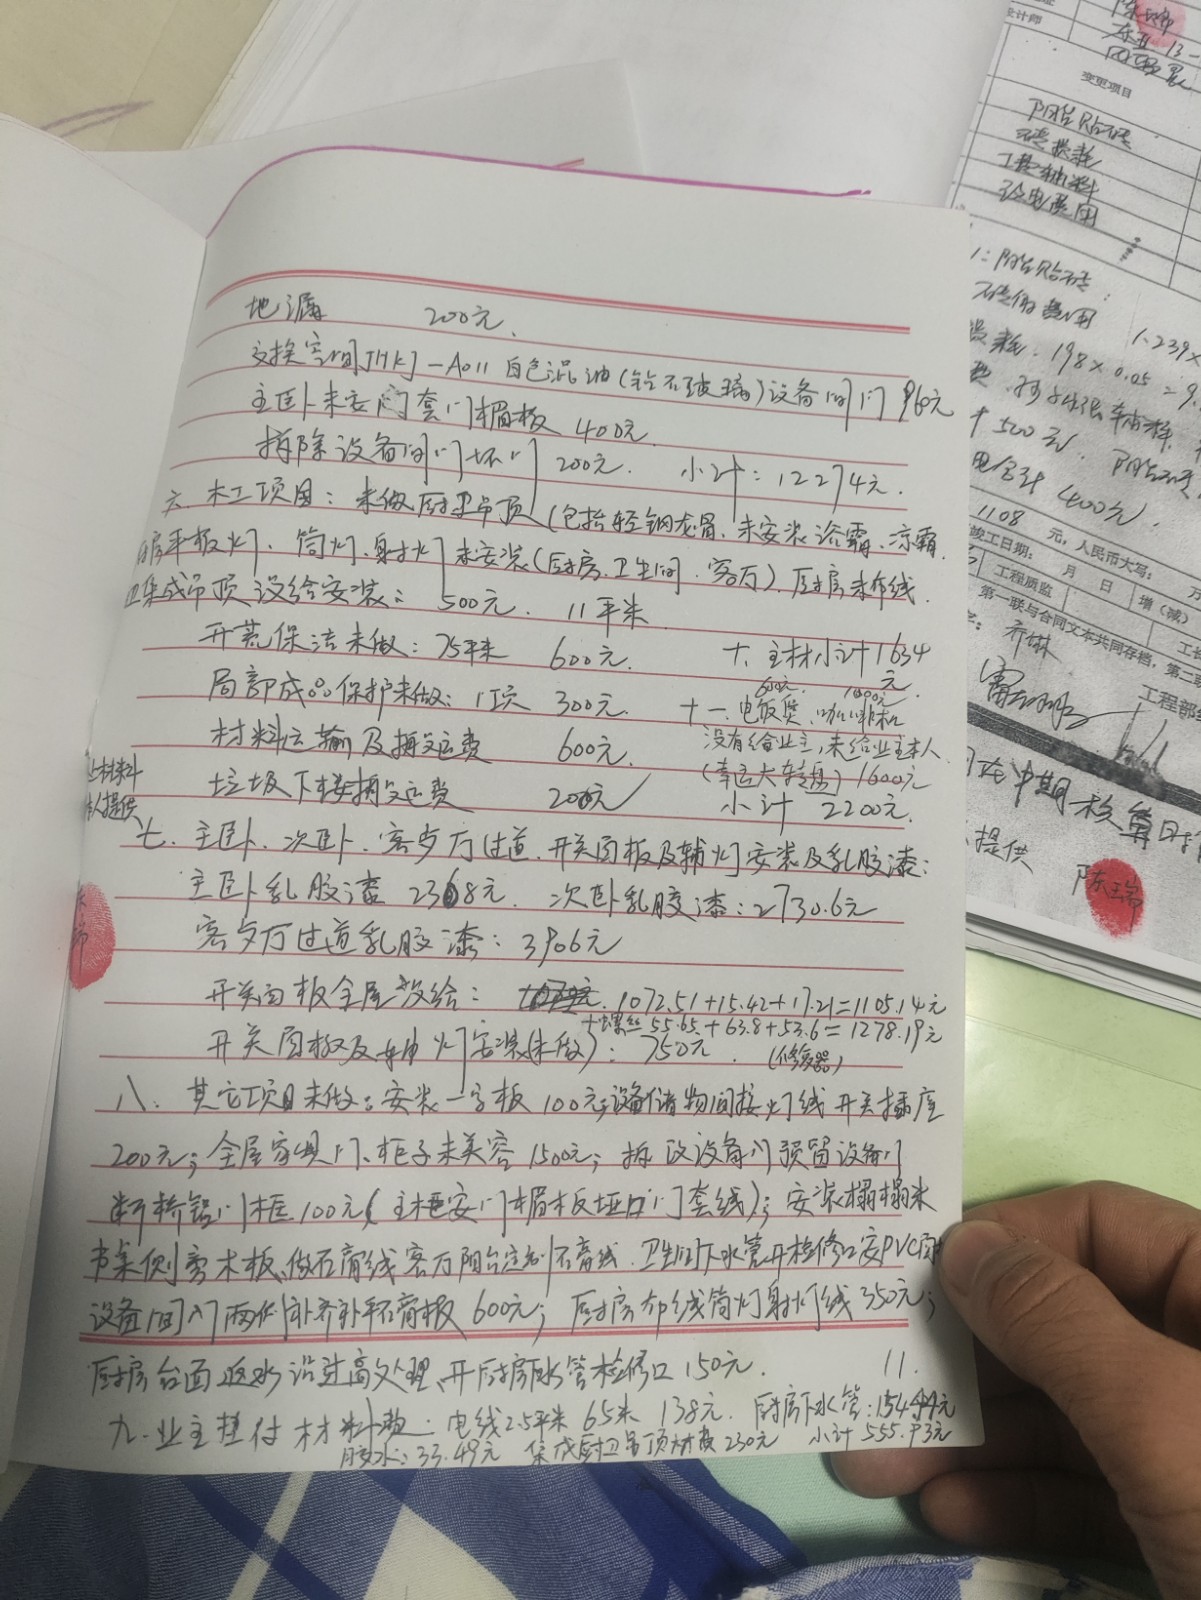 地漏 200元.
交换空间JHKJ-A011 白色混油(钻石玻璃)设备间门 960元
主卧未安门套门楣板 400元.
拆除设备间门坏门 200元. 小计:12274元.
六、木工项目:未做厨卫吊顶(包括轻钢龙骨、未安装浴霸、凉霸、
厨房平板灯、筒灯、射灯未安装(厨房、卫生间、客厅).厨房未布线.
卫集成吊顶没给安装: 500元. 11平米
开荒保洁未做: 75平米 600元.
局部成品保护未做: 1项 300元.
材料运输及搬运费 600元.
垃圾下楼搬运费 200元
十、主材小计1634
元.
600元. 1000元
十一、电饭煲、咖啡机
没有给业主,未给业主本人
(幸运大转盘) 1600元
小计 2200元.
材料
人提供
七、主卧、次卧、客步厅过道、开关面板及辅灯安装及乳胶漆:
主卧乳胶漆 2368元. 次卧乳胶漆:2730.6元
客步厅过道乳胶漆: 3906元
开关面板全屋没给: 1072.51+15.42+17.21=1105.14元
+螺丝 55.65.+63.8+53.6=1278.19元
开关面板及 灯安装(未做): 750元. (修容器)
八、其它项目未做:安装一字板 100元;设备储物间接灯线开关插座
200元;全屋家具门、柜子未美容 1500元;拆改设备门预留设备门
断桥铝门框100元(主卧安门楣板垭口门套线);安装榻榻米
书桌侧旁木板、做石膏线客厅阳台定制石膏线.卫生间下水管开检修口安PVC
设备间门两侧补齐补平石膏板 600元;厨房布线筒灯射灯线 350元;
厨房台面返水没进高处理、开厨房下水管检修口 150元. 11.
九、业主垫付材料款:电线2.5平米 65米 138元. 厨房下水管:154.44元
胶水:33.49元 集成厨卫吊顶材料费 230元 小计 555.93元
陈瑞
设计师
变更项目
阳台贴砖
砖损耗
工费辅料
水电费用
1:阳台贴砖:
1.239×
损耗. 198×0.05=9.
500元.
400元.
1108 元,人民币大写: 万
竣工日期: 月 日 增(减)
工程质监
第一联与合同文本共同存档,第二联
乔琳
工程部
中期核算日
提供
陈瑞